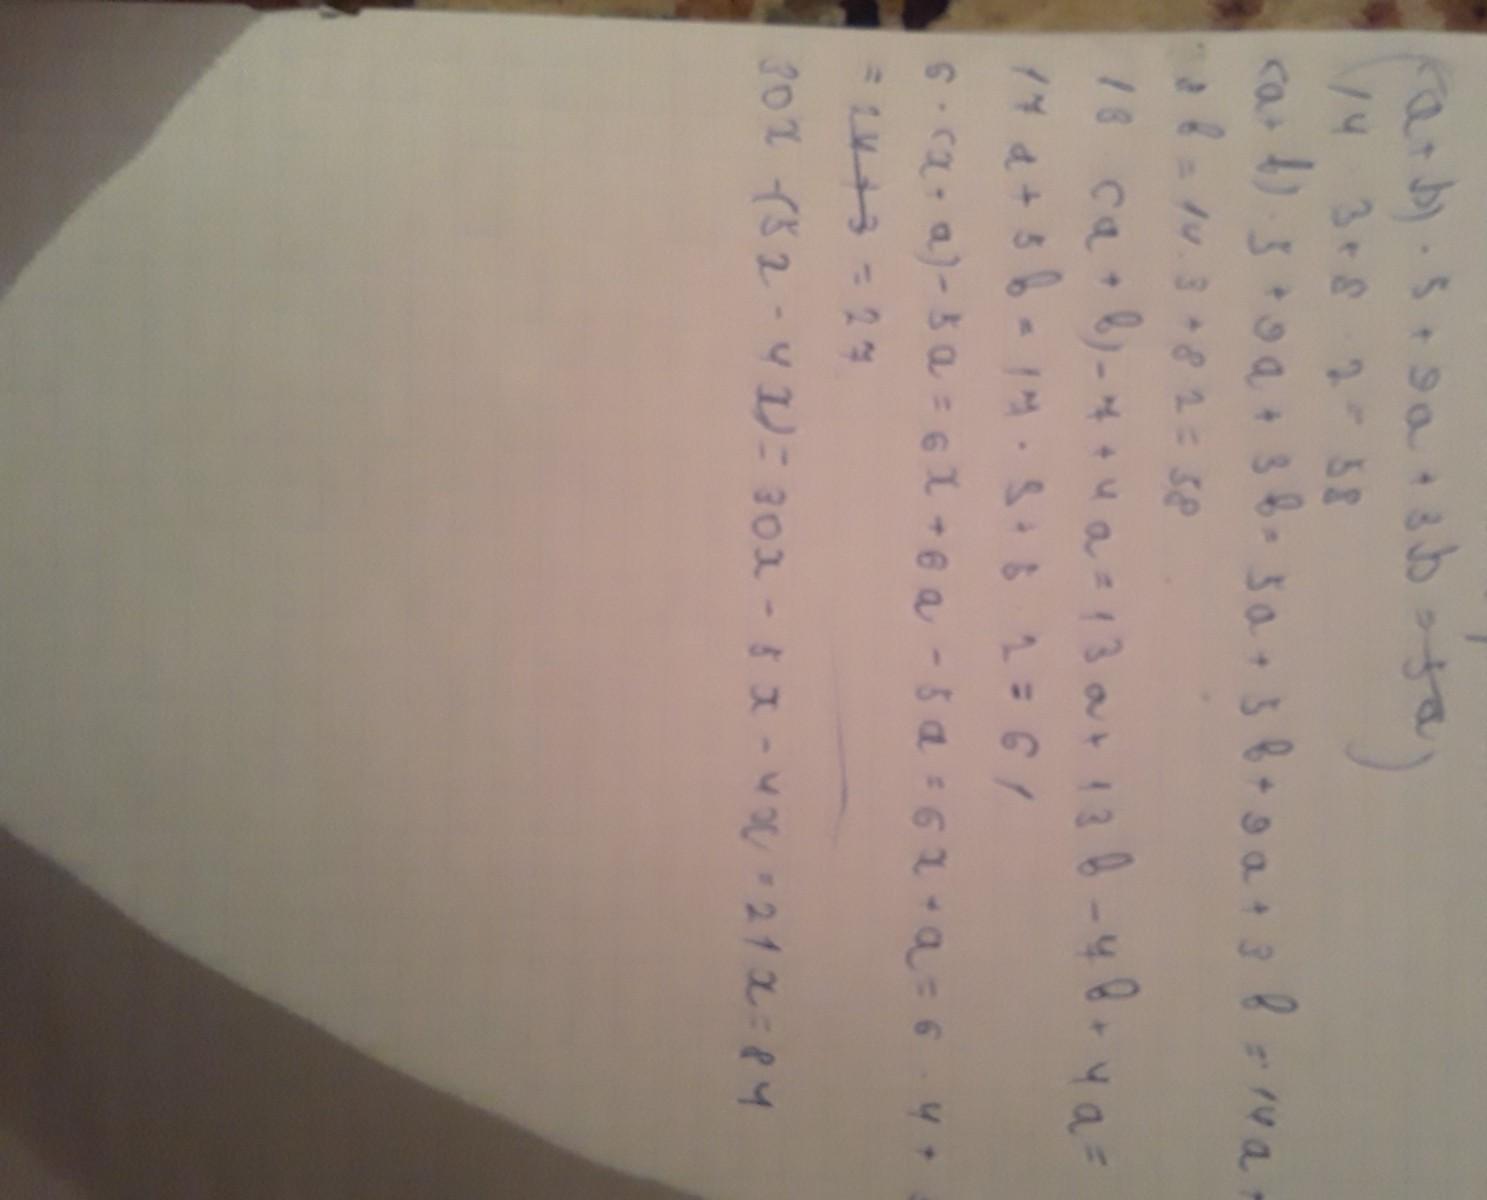 (a+b)·5+9a+3b=5a)
14 3+8·2=58
(a+b)·5+9a+3b=5a+5b+9a+3b=14a+
8b=14·3+8 2=58
13 (a+b)-7+4a=13a+13b-7b+4a=
17a+5b=17·3+5 2=61
6·(x+a)-5a=6x+6a-5a=6x+a=6·4+
=24+3=27
30x-(5x-4x)=30x-5x-4x=21x=84